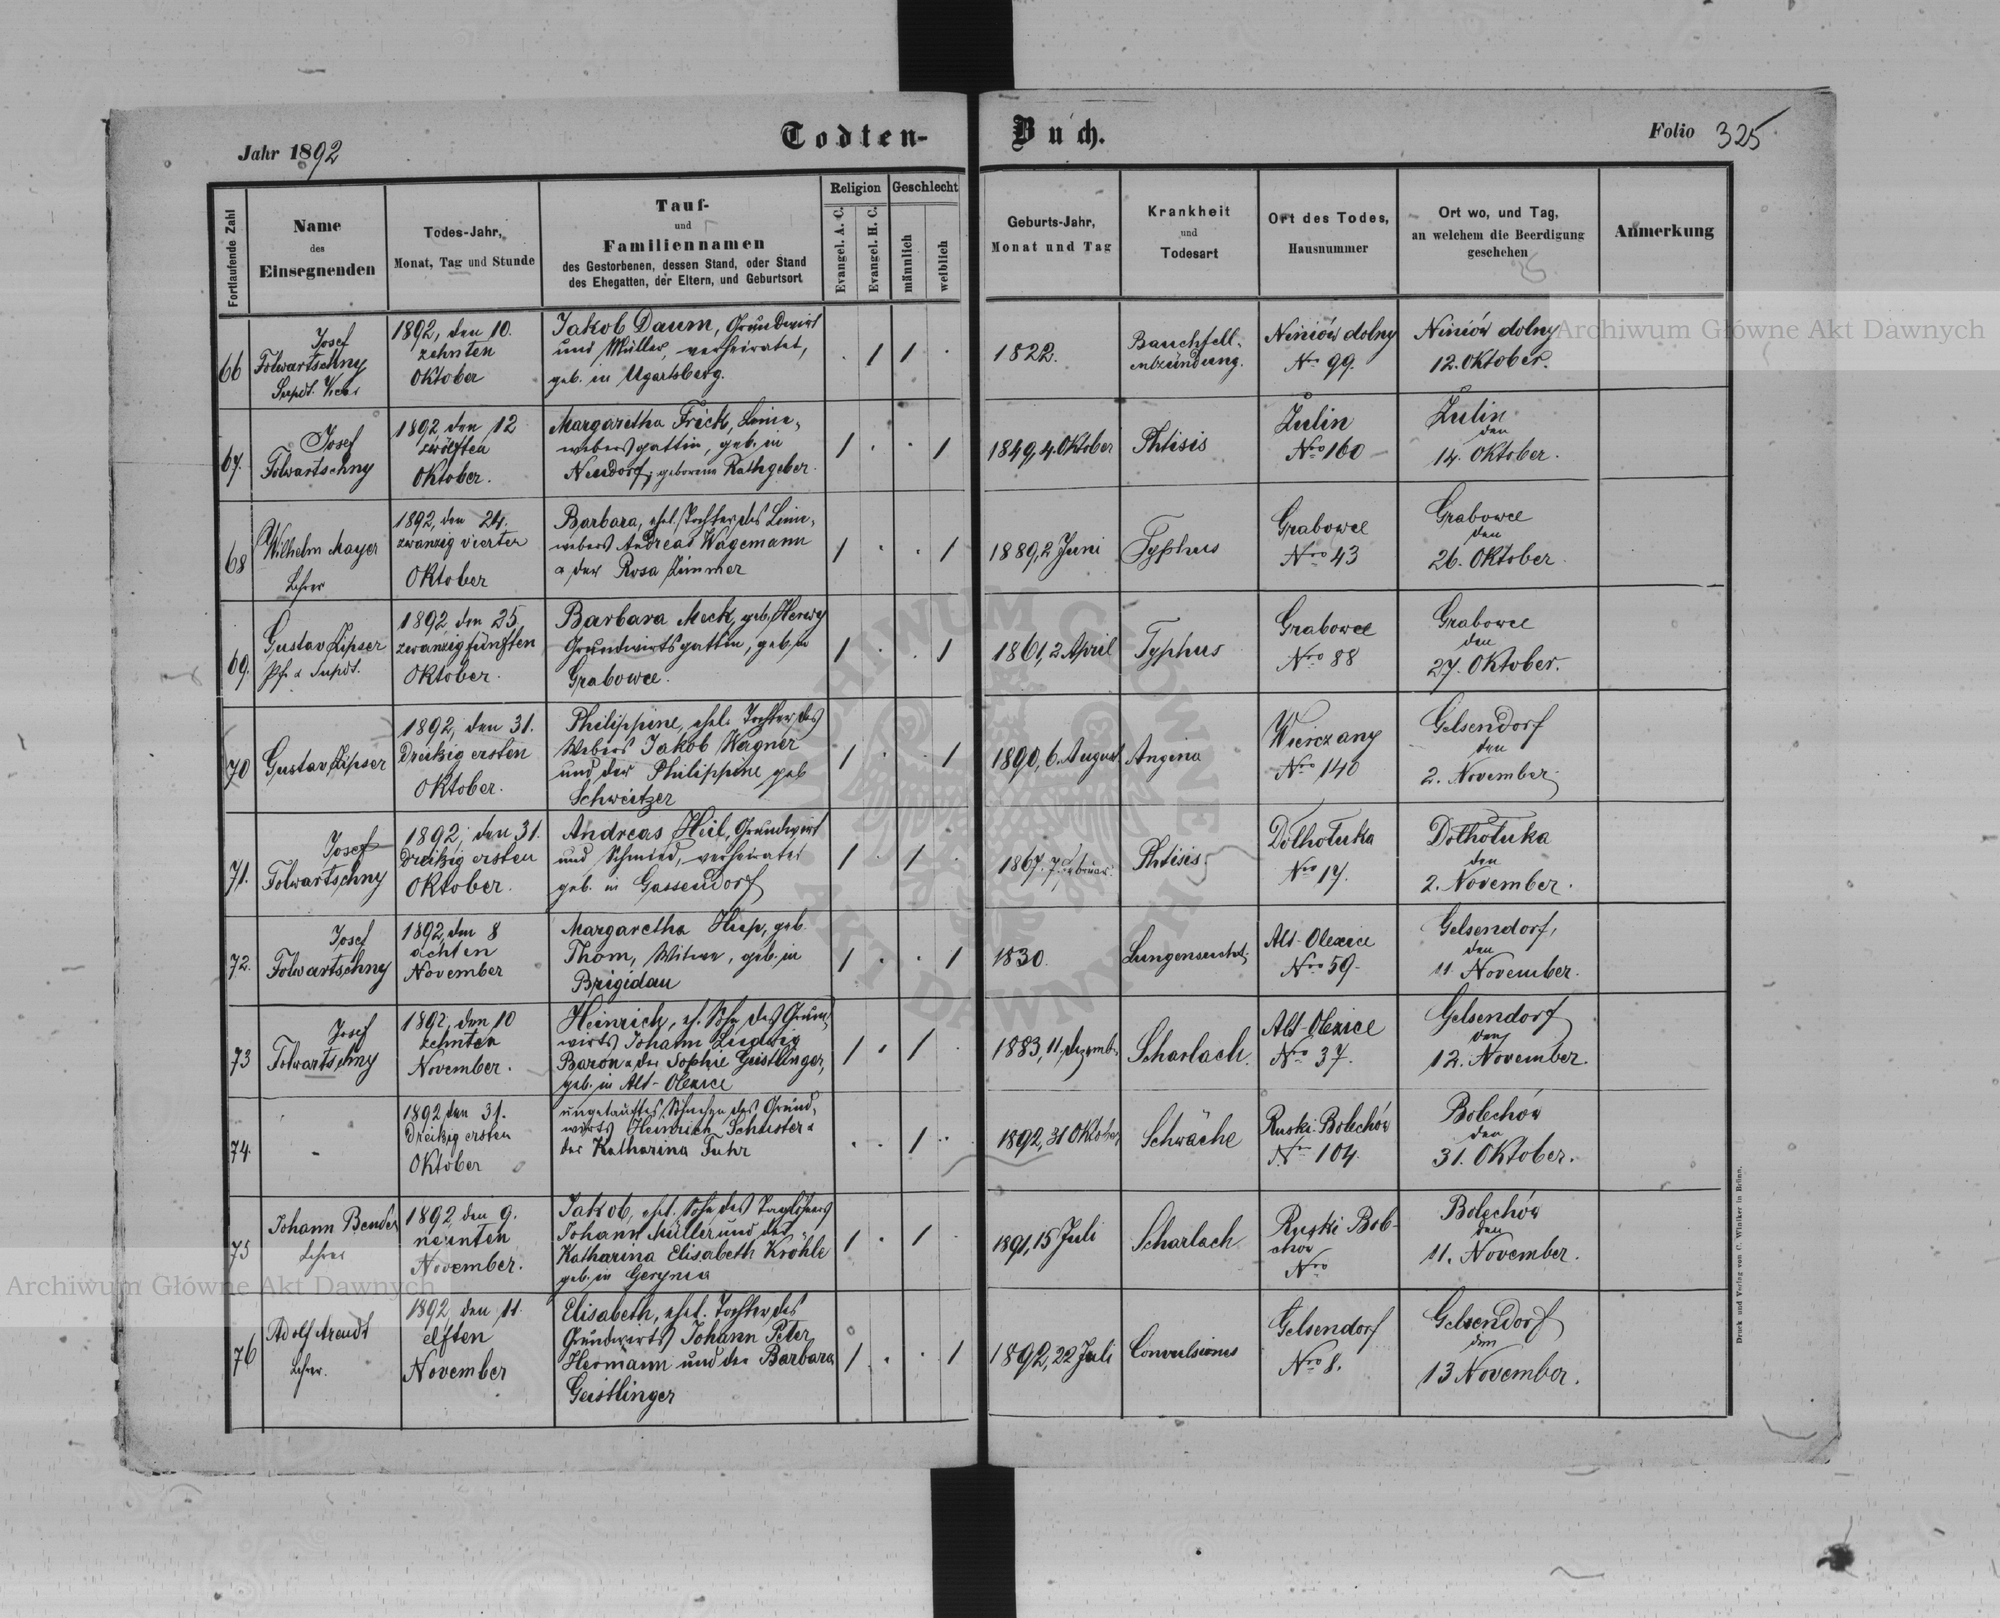 Jahr 1892
Todten-Buch.
Folio 325
Fortlaufende Zahl
Name
des
Einsegnenden
Todes-Jahr,
Monat, Tag und Stunde
Tauf-
und
Familiennamen
des Gestorbenen, dessen Stand, oder Stand
des Ehegatten, der Eltern, und Geburtsort
Religion
Evangel. A. C.
Evangel. H. C.
Geschlecht
männlich
weiblich
Geburts-Jahr,
Monat und Tag
Krankheit
und
Todesart
Ort des Todes,
Hausnummer
Ort wo, und Tag,
an welchem die Beerdigung
geschehen
Anmerkung
66
Josef
Folwartschny
Supdt. Vicar
1892, den 10.
zehnten
Oktober
Jakob Daum, Grundwirt
und Müller, verheiratet,
geb. in Ugartsberg.
1822.
Bauchfell-
entzündung.
Niniów dolny
No 99.
Niniów dolny
12. Oktober.
67.
Josef
Folwartschny
1892 den 12
zwölften
Oktober.
Margaretha Frick, Leine-
webersgattin, geb. in
Neudorf, geborene Rathgeber.
1849, 4. Oktober
Phtisis
Zulin
Nro 100
Zulin
den
14. Oktober.
68
Wilhelm Mayer
Lehrer
1892, den 24.
zwanzig vierten
Oktober
Barbara, ehel. Tochter des Leine-
webers Andreas Wagemann
u der Rosa Zimmer
1889, 2 Juni
Typhus
Grabowce
Nro 43
Grabowce
den
26. Oktober
69.
Gustav Lipser
Pf. u Supdt.
1892 den 25.
zwanzigfünften
Oktober.
Barbara Meck, geb. Herwy
Grundwirtsgattin, geb. in
Grabowce.
1861, 2 April
Typhus
Grabowce
Nro 88
Grabowce
den
27. Oktober.
70
Gustav Lipser
1892, den 31.
Dreißig ersten
Oktober.
Philippine, ehel. Tochter des
Webers Jakob Wagner
und der Philippine geb
Schweitzer
1890, 6. August
Angina
Wierczany
Nro 140
Gelsendorf
den
2. November.
71.
Josef
Folwartschny
1892, den 31.
Dreißig ersten
Oktober.
Andreas Heil, Grundwirt
und Schmied, verheiratet
geb. in Gassendorf
1867. 7. Februar.
Phtisis.
Dołhołuka
Nro 17.
Dołhołuka
den
2. November.
72.
Josef
Folwartschny
1892, den 8
achten
November
Margaretha Hiep, geb.
Thom, Witwe, geb. in
Brigidau
1830.
Lungensucht.
Alt-Olexice
Nro 59.
Gelsendorf,
den
11. November.
73
Josef
Folwartschny
1892, den 10
zehnten
November.
Heinrich, eh. Sohn des Grund-
wirts Johann Ludwig
Baron u der Sophie Geistlinger,
geb. in Alt-Olexice
1883, 11. Dezemb.
Scharlach.
Alt-Olexice
Nro 37.
Gelsendorf
den
12. November.
74.
-
1892 den 31.
Dreißig ersten
Oktober
ungetauftes Söhnchen des Grund-
wirts Heinrich Schuster u
der Katharina Fuhr
1892, 31 Oktober
Schwäche
Ruski-Bolechów
No 104.
Bolechów
den
31. Oktober.
75
Johann Bender
Lehrer
1892 den 9.
neunten
November.
Jakob, ehel. Sohn des Taglöhners
Johann Müller und der
Katharina Elisabeth Krohle
geb. in Gerynia
1891, 15 Juli
Scharlach
Ruski Bole-
chow
Nro
Bolechów
den
11. November.
76
Adolf Arendt
Lehrer.
1892 den 11.
elften
November
Elisabeth, ehel. Tochter des
Grundwirts Johann Peter
Hermann und der Barbara
Geistlinger
1892, 22 Juli
Convulsiones
Gelsendorf
Nro 8.
Gelsendorf
den
13 November.
Druck und Verlag von C. Winiker in Brünn.
Archiwum Główne Akt Dawnych
Archiwum Główne Akt Dawnych
ARCHIWUM GŁÓWNE AKT DAWNYCH